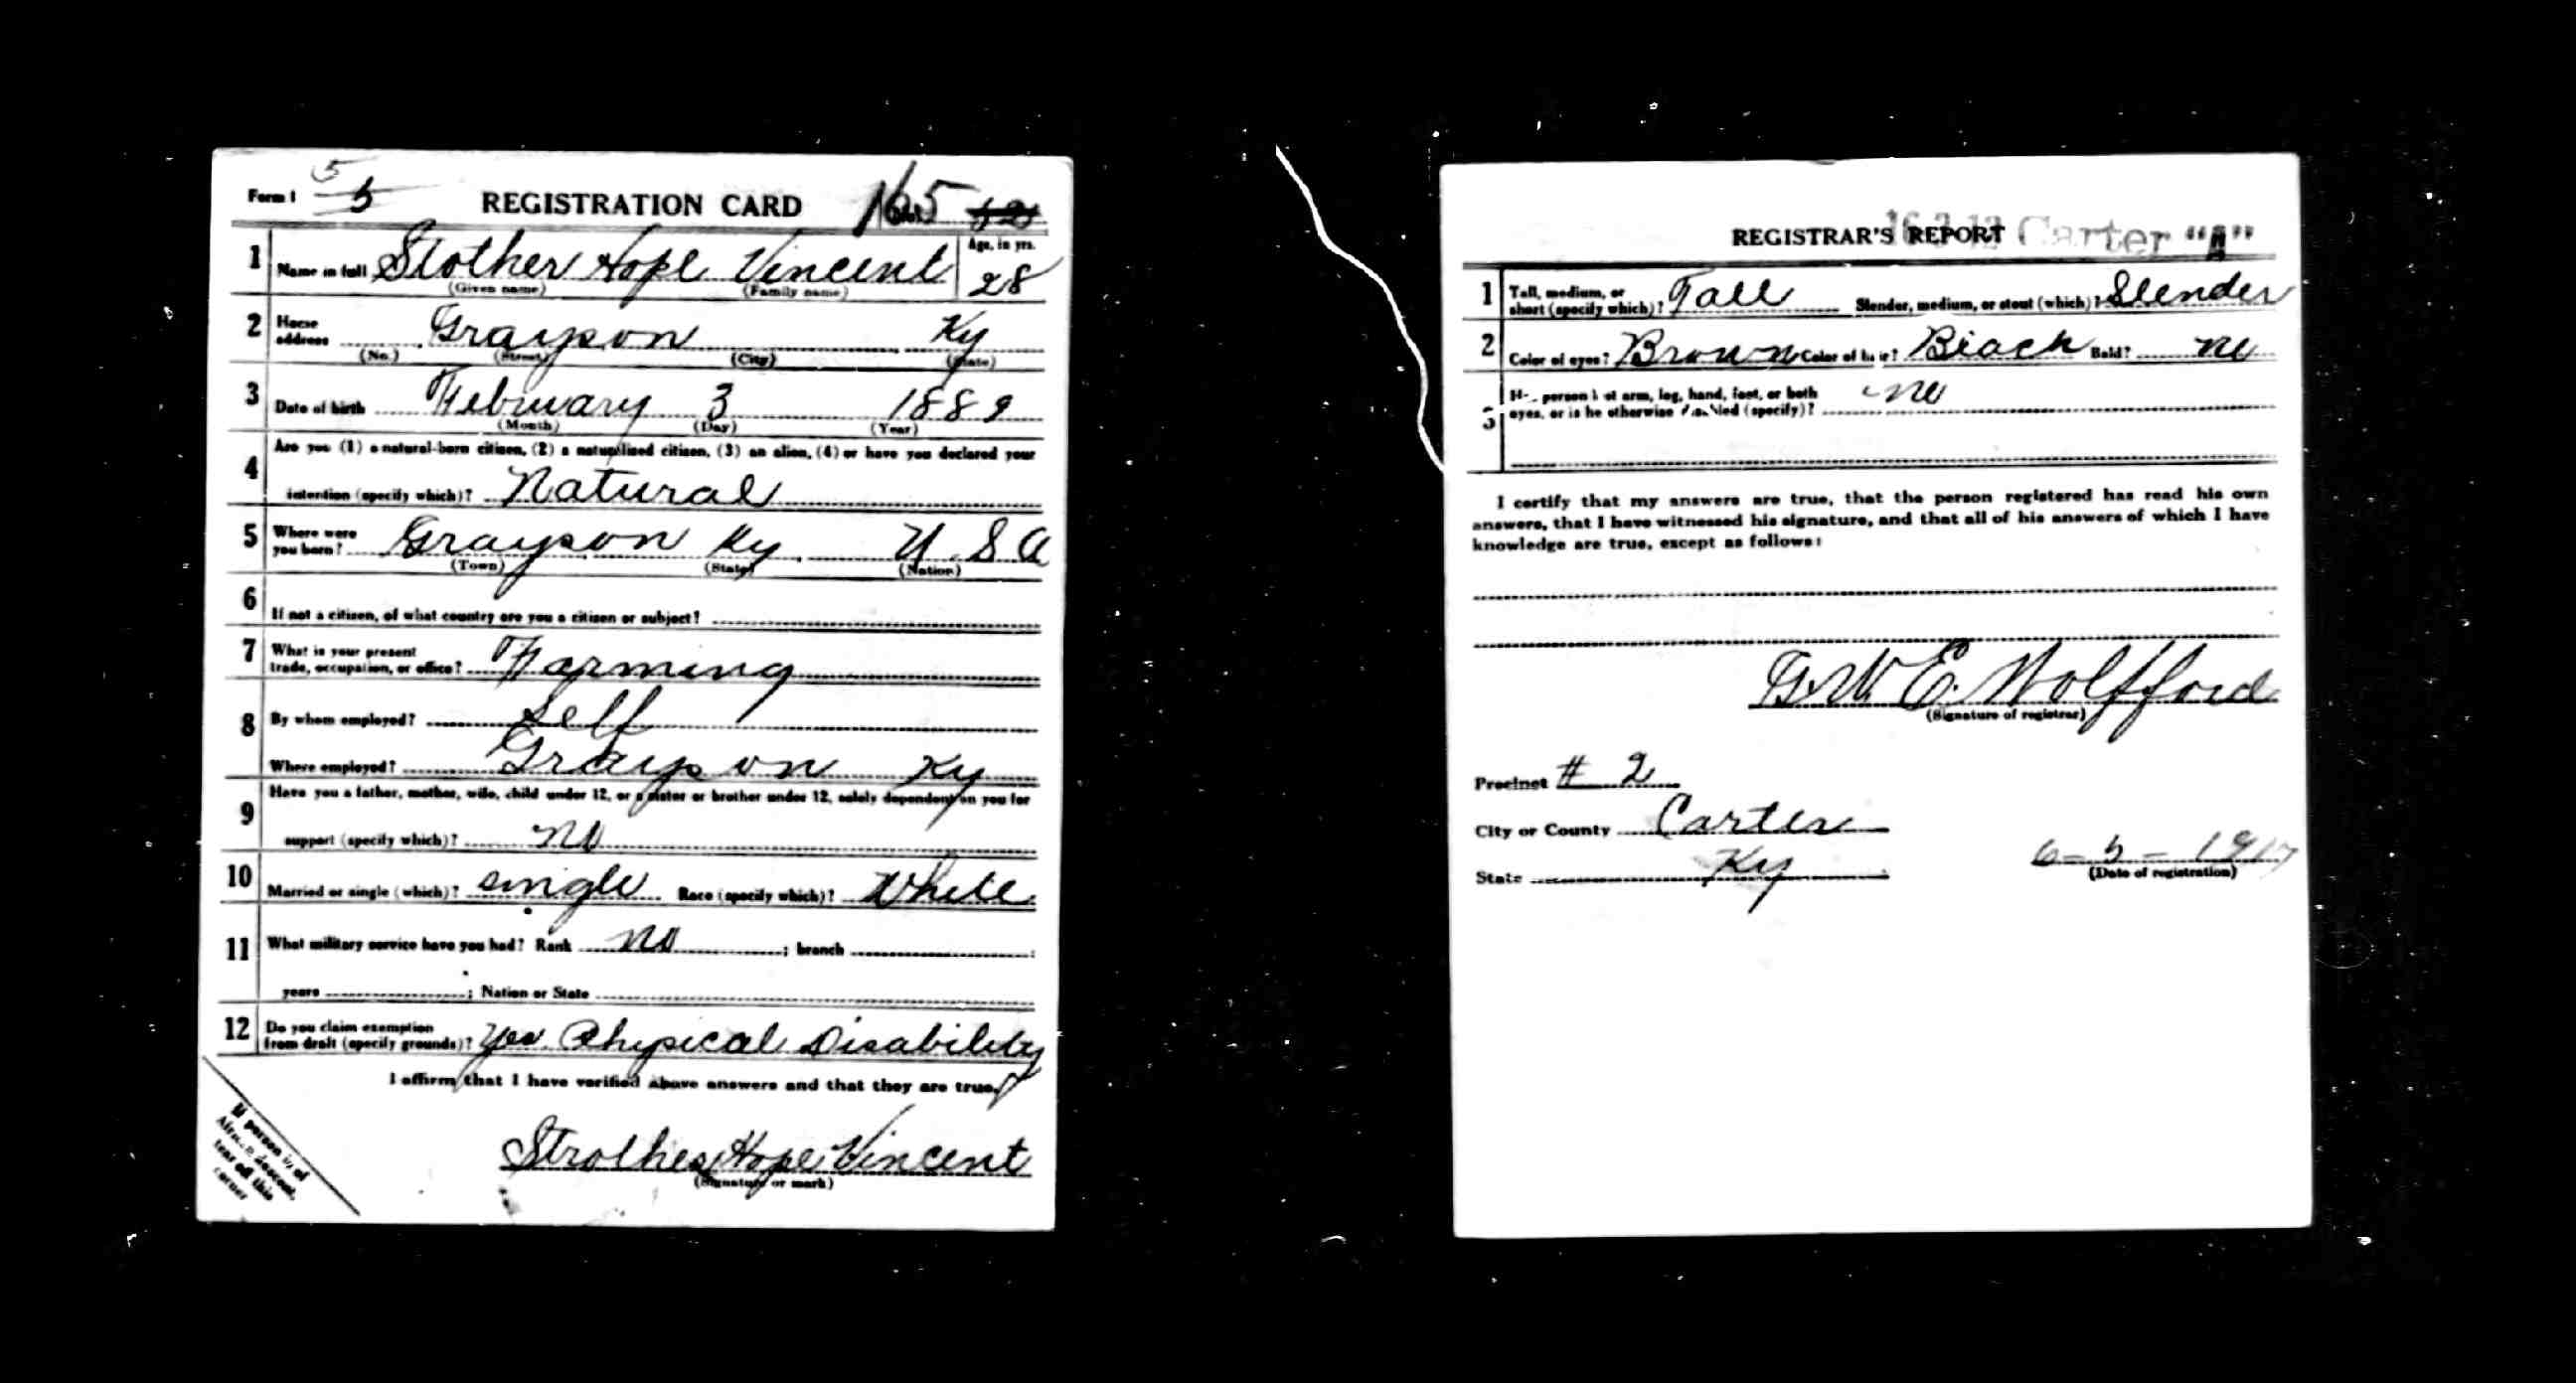 Form 1 5 5 REGISTRATION CARD 165
1 Name in full Slother Hope Vincent Age, in yrs. 28
(Given name) (Family name)
2 Home address Grayson Ky
(No.) (Street) (City) (State)
3 Date of birth February 3 1889
(Month) (Day) (Year)
4 Are you (1) a natural-born citizen, (2) a naturalized citizen, (3) an alien, (4) or have you declared your
intention (specify which)? Natural
5 Where were you born? Grayson Ky. U.S.A
(Town) (State) (Nation)
6 If not a citizen, of what country are you a citizen or subject?
7 What is your present
trade, occupation, or office? Farming
8 By whom employed? Self
Where employed? Grayson Ky
9 Have you a father, mother, wife, child under 12, or a sister or brother under 12, solely dependent on you for
support (specify which)? no
10 Married or single (which)? single Race (specify which)? White
11 What military service have you had? Rank no ; branch ;
years ; Nation or State
12 Do you claim exemption
from draft (specify grounds)? Yes. Physical Disability
I affirm that I have verified above answers and that they are true.
Strother Hope Vincent
(Signature or mark)
If person is of
African descent,
tear off this
corner
REGISTRAR'S REPORT Carter "A"
1 Tall, medium, or
short (specify which)? Tall Slender, medium, or stout (which)? Slender
2 Color of eyes? Brown Color of hair? Black Bald? no
3 Has person lost arm, leg, hand, foot, or both
eyes, or is he otherwise disabled (specify)? no
I certify that my answers are true, that the person registered has read his own
answers, that I have witnessed his signature, and that all of his answers of which I have
knowledge are true, except as follows:
G.W.E. Wolfford
(Signature of registrar)
Precinct # 2
City or County Carter
State Ky
6-5-1917
(Date of registration)